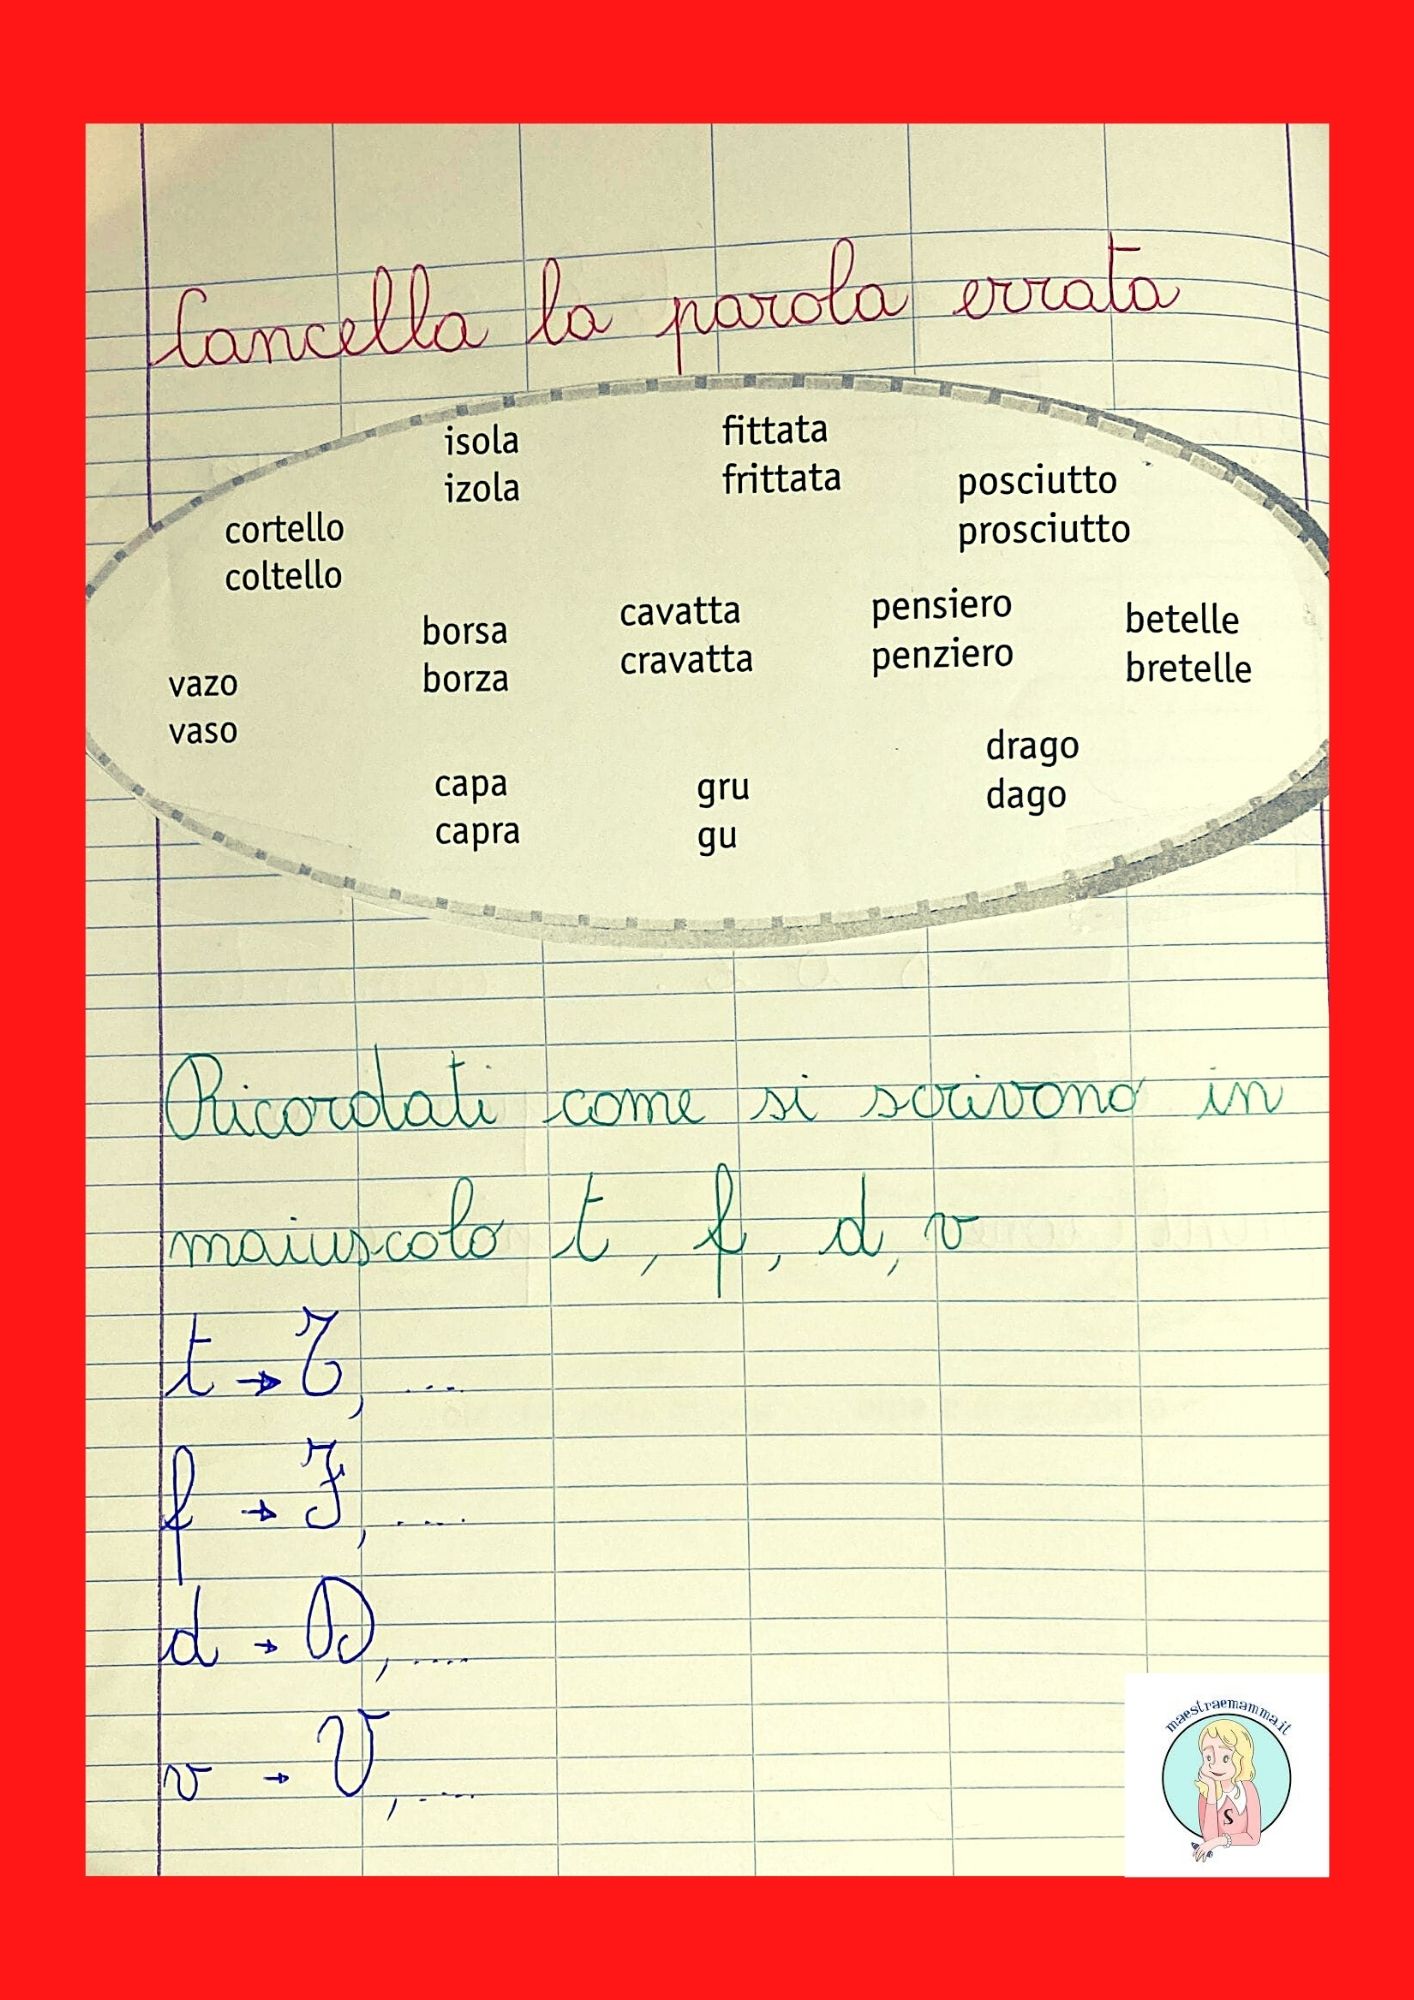 Cancella la parola errata
isola
izola
fittata
frittata
posciutto
prosciutto
cortello
coltello
borsa
borza
cavatta
cravatta
pensiero
penziero
betelle
bretelle
vazo
vaso
capa
capra
gru
gu
drago
dago
Ricordati come si scrivono in
maiuscolo t, f, d, v
t → T, ...
f → F, ....
d → D, ....
v → V, ....
maestraemamma.it
S